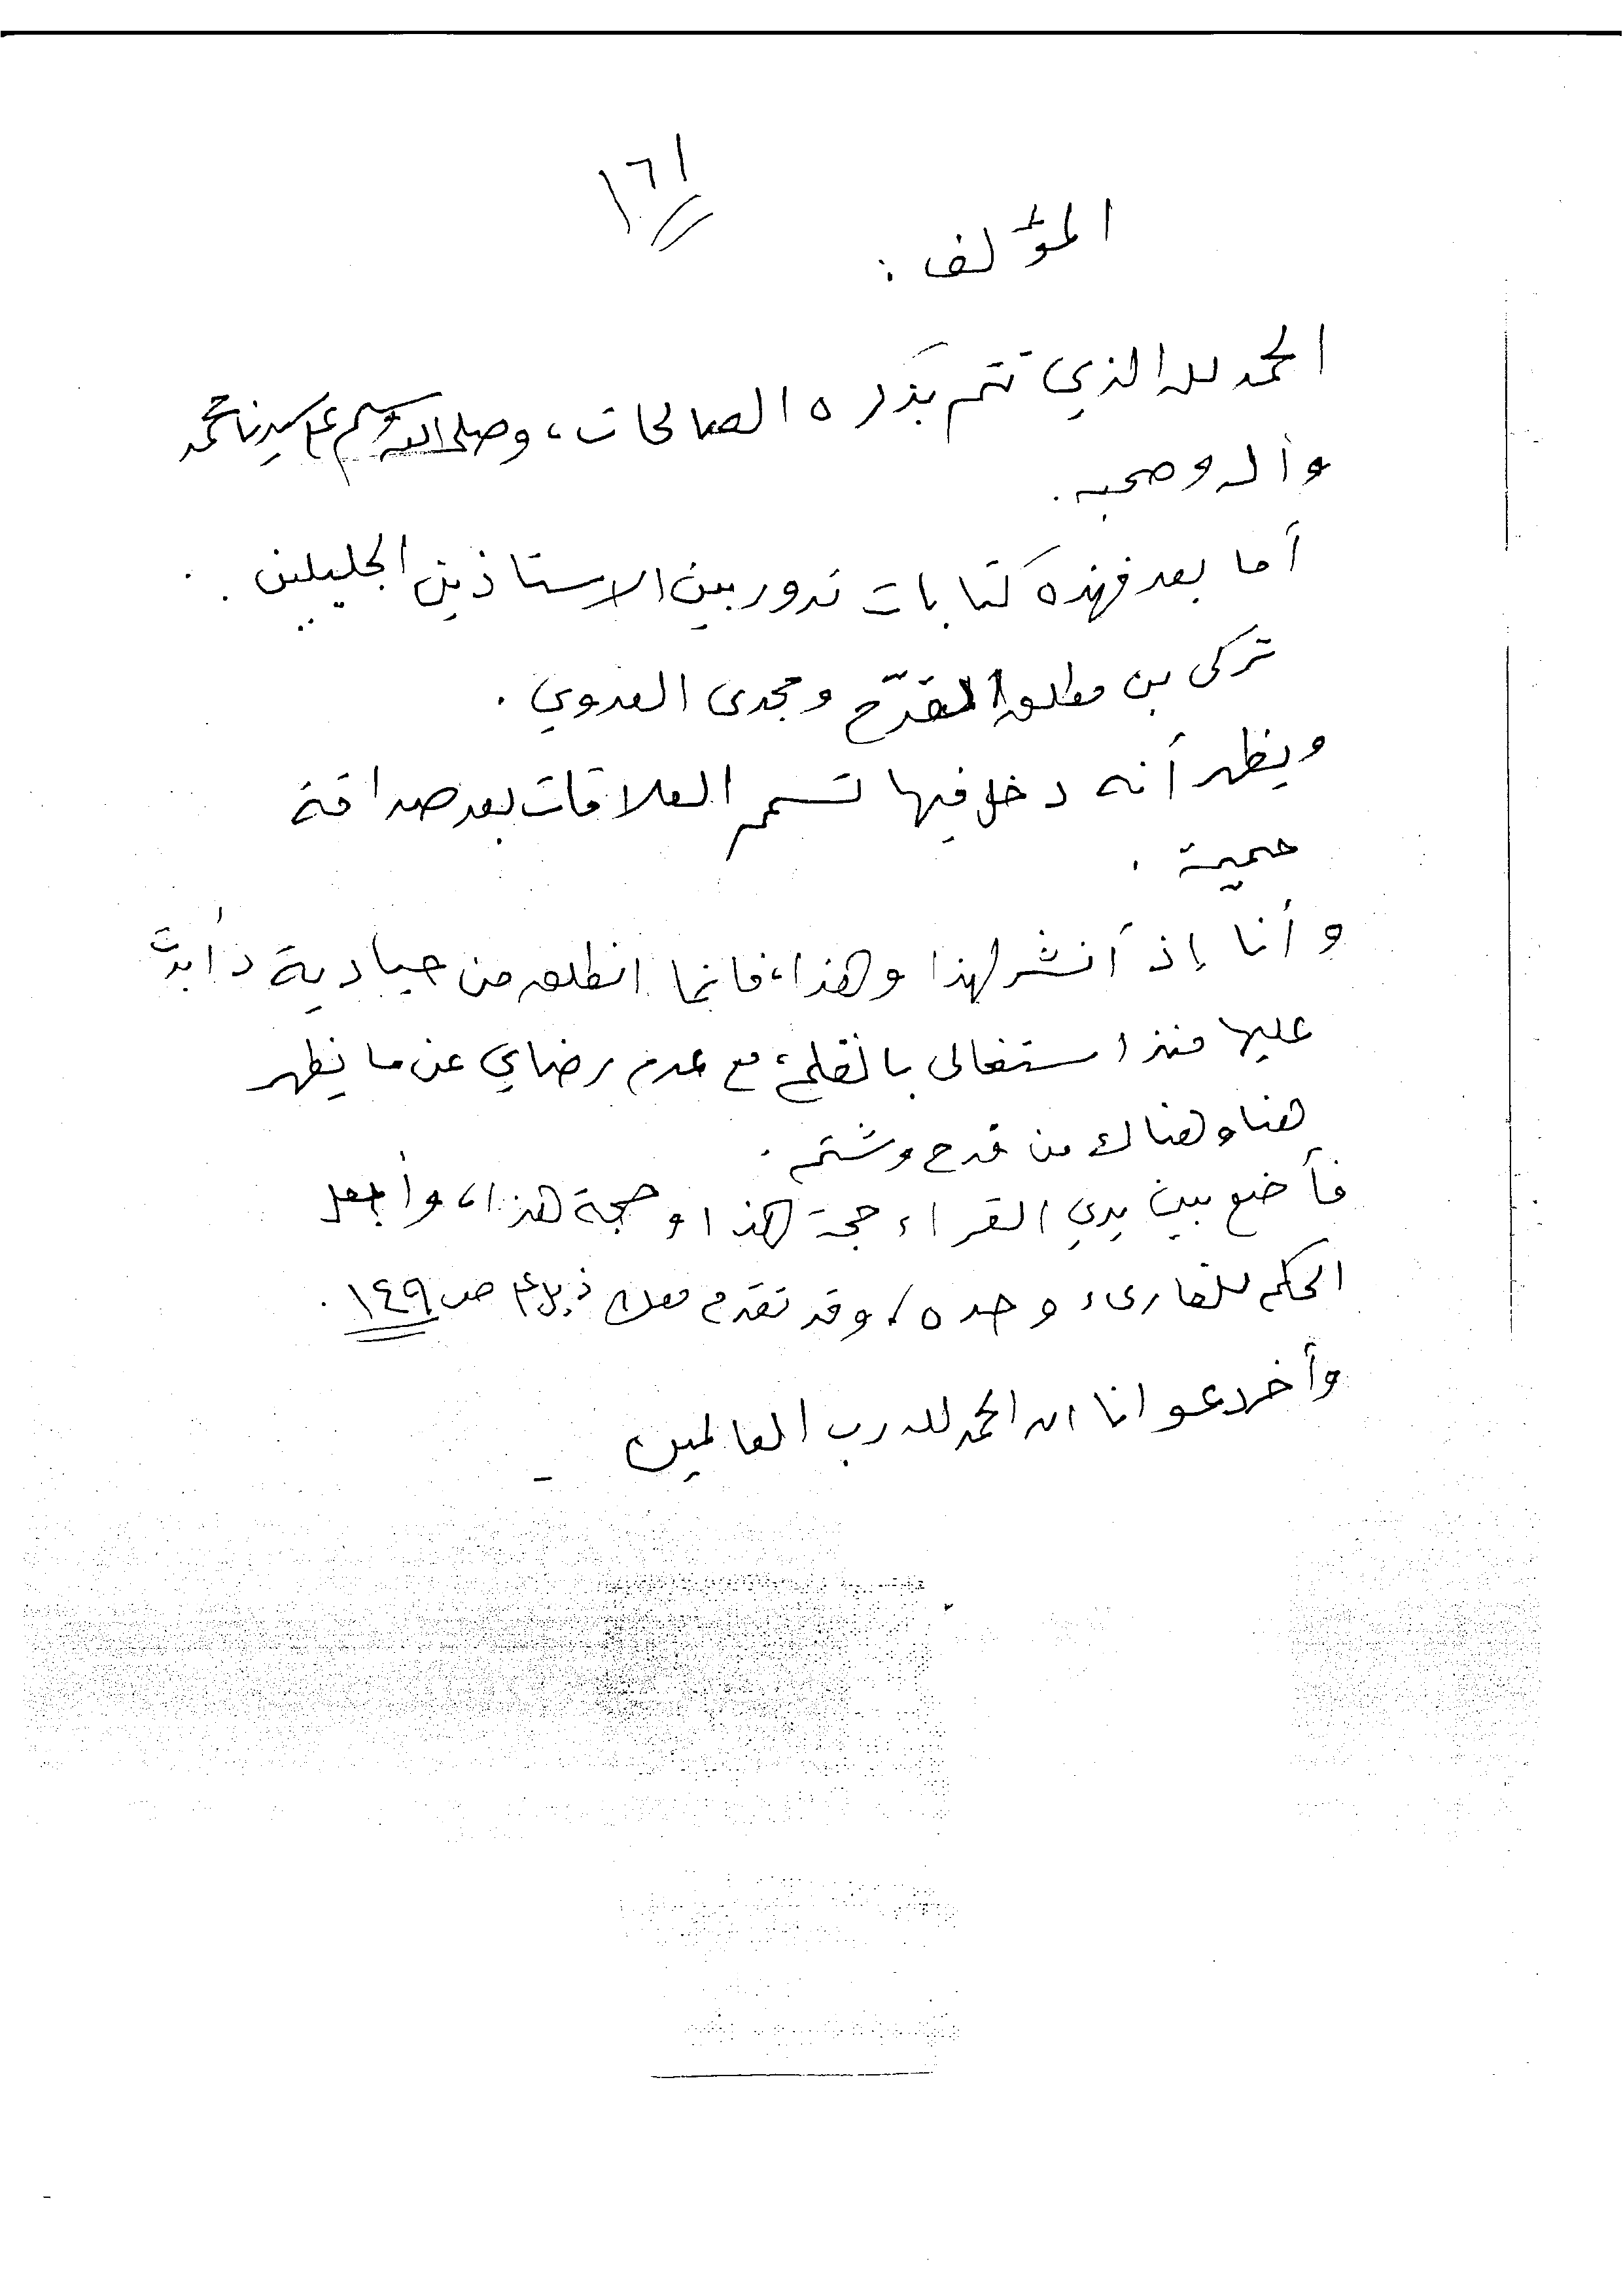 ١٦١
المؤلف :
الحمد لله الذي تتم بذكره الصالحات، وصلى الله وسلم على سيدنا محمد
وآله وصحبه.
أما بعد فهذه كتابات تدور بين الاستاذين الجليلين :
تركي بن مطلق القدّاح ومجدى العدوي .
ويظهر أنه دخل فيها تسمم العلاقات بعد صداقة
حميمة .
وأنا إذ أنشر لهذا وهذا، فانما انطلق من حيادية دأبتُ
عليها منذ اشتغالى بالقلم، مع عدم رضاي عن ما يظهر
هنا وهناك من قدح وشتم .
فأضع بين يدي القراء حجة هذا وحجة هذا، وأجعل
الحكم للقارىء وحده، وقد تقدم معك ص ١٤٩ .
وأخر دعوانا ان الحمد لله رب العالمين